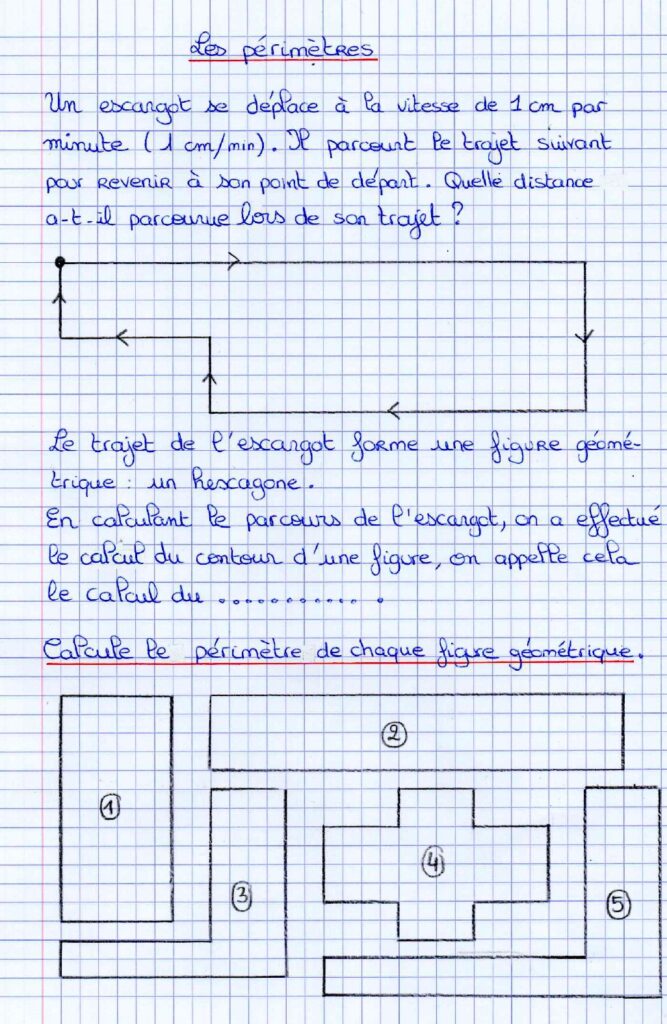 Les périmètres
Un escargot se déplace à la vitesse de 1 cm par
minute (1 cm/min). Il parcourt le trajet suivant
pour revenir à son point de départ. Quelle distance
a-t-il parcourue lors de son trajet ?
Le trajet de l'escargot forme une figure géomé-
trique : un hexagone.
En calculant le parcours de l'escargot, on a effectué
le calcul du contour d'une figure, on appelle cela
le calcul du ............ .
Calcule le périmètre de chaque figure géométrique.
1
2
3
4
5